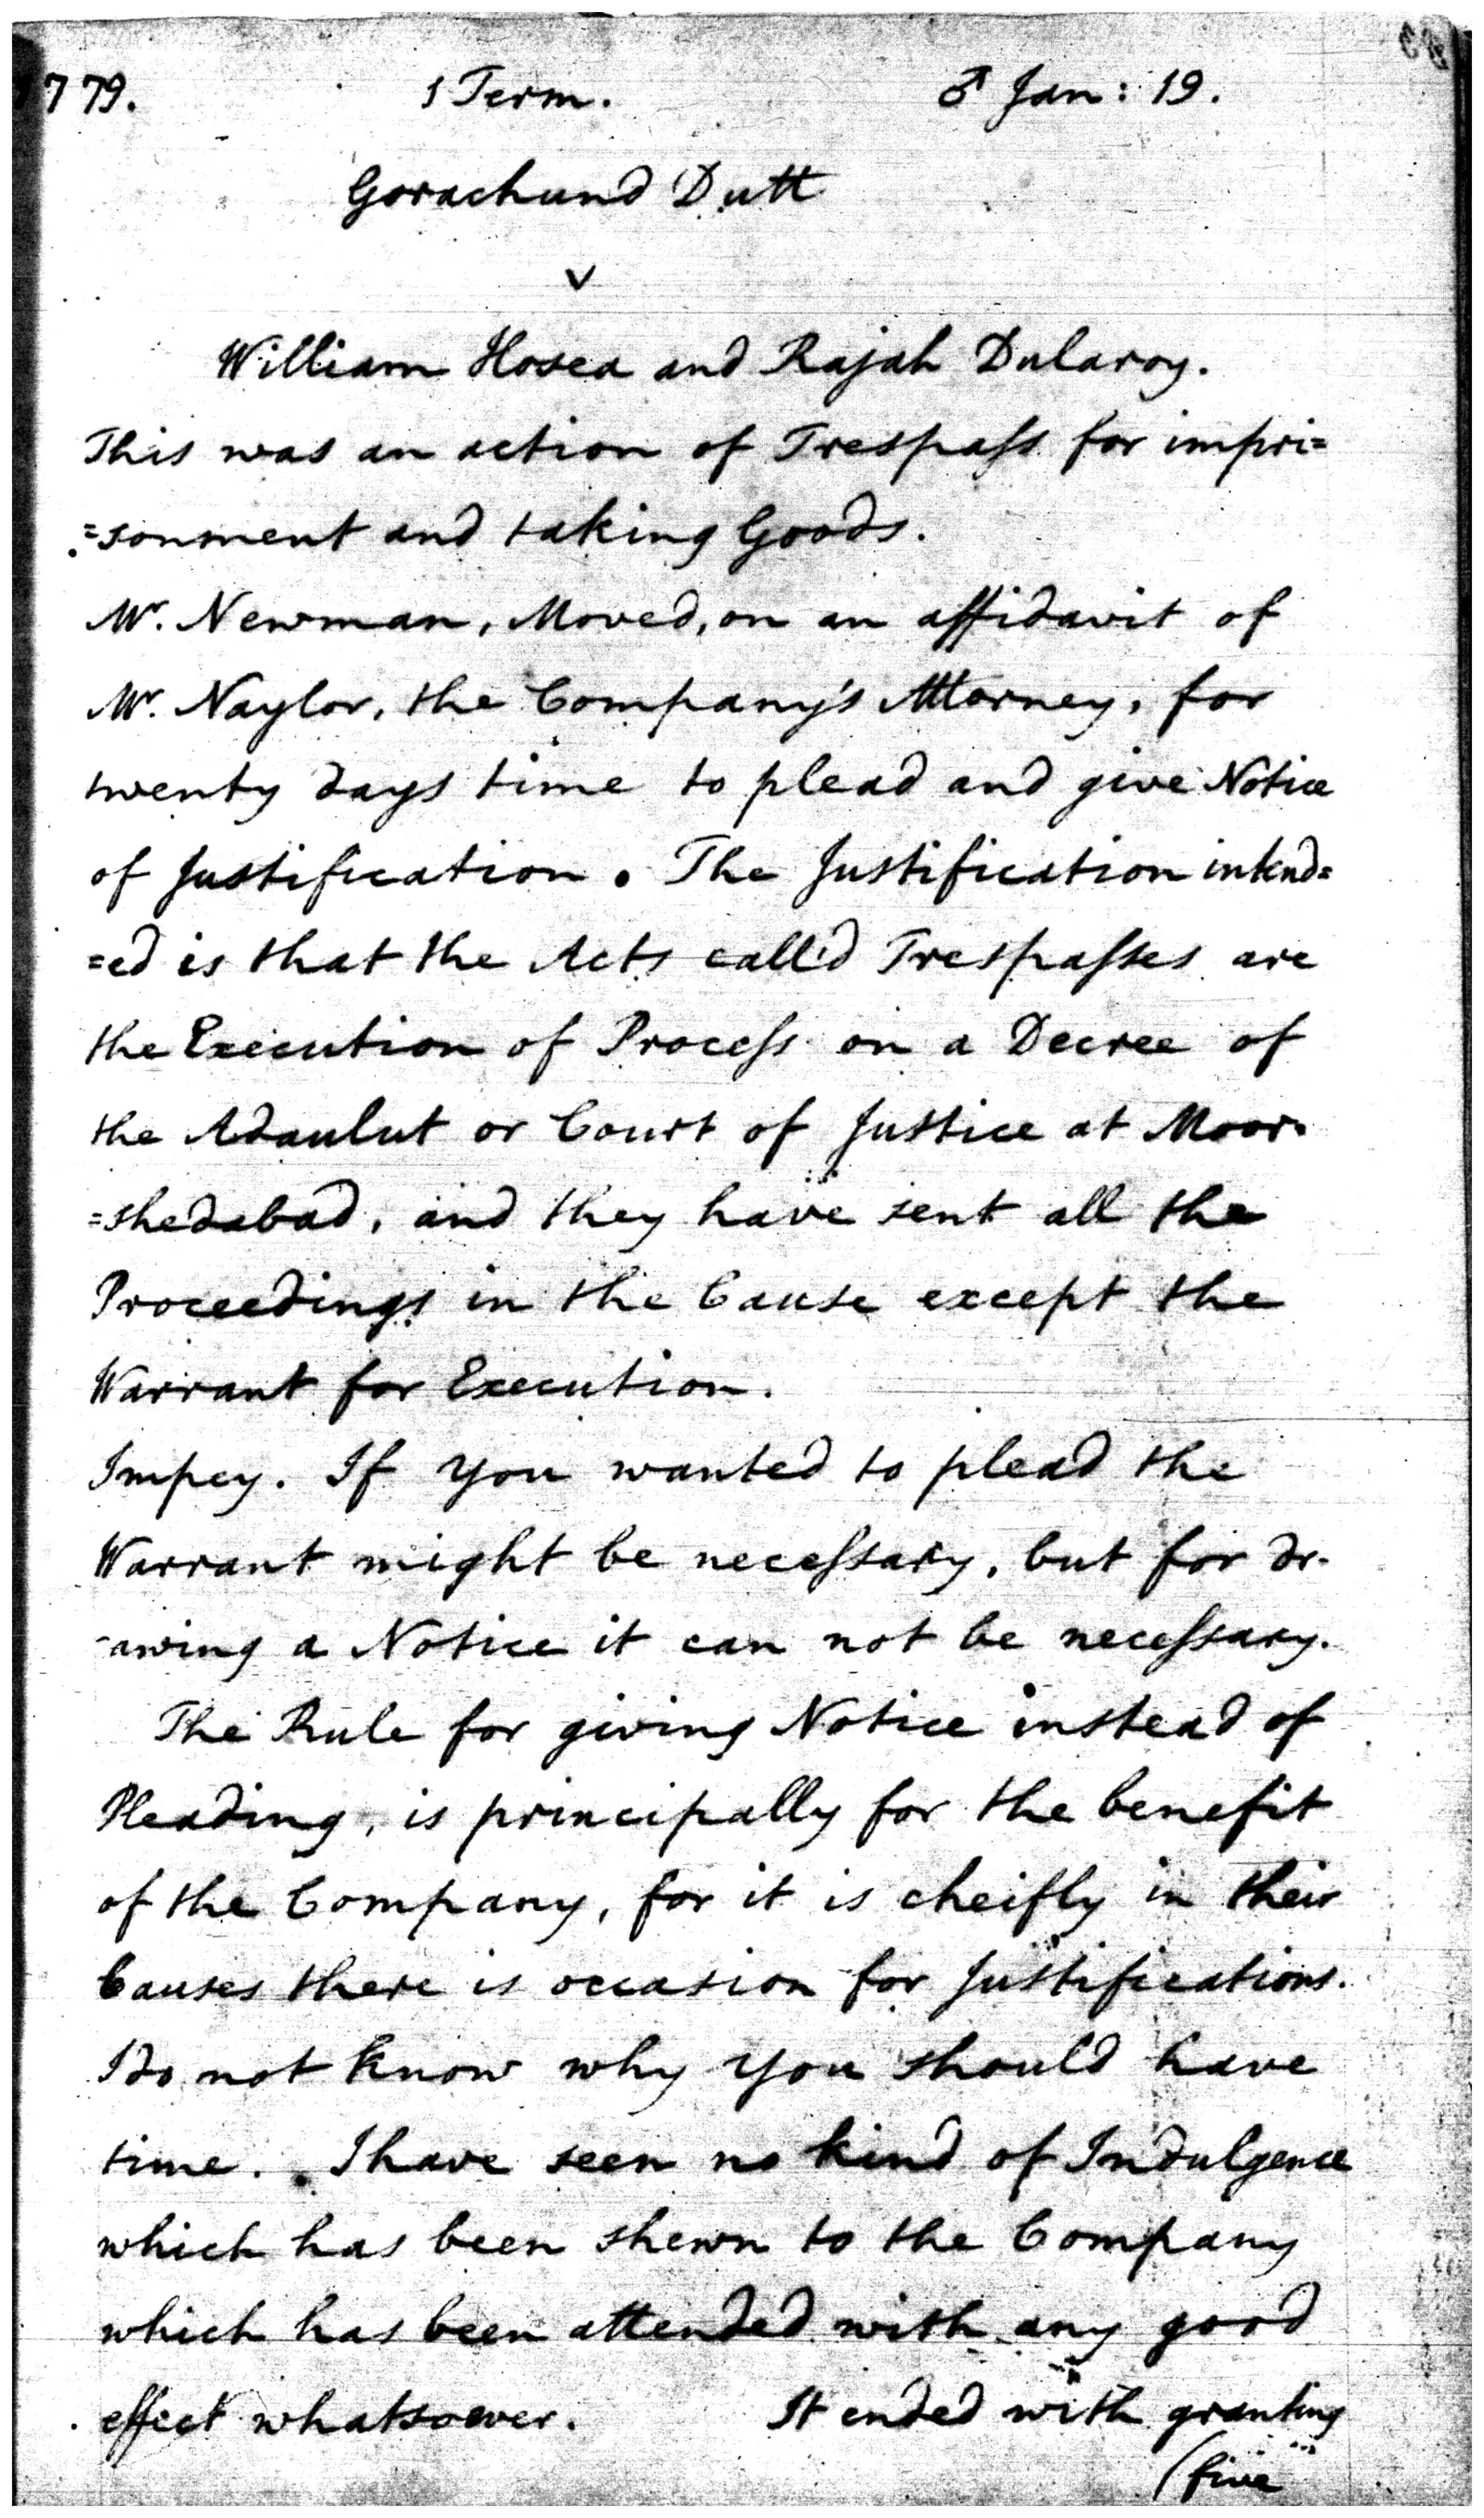 1779. 1 Term. ♂ Jan: 19.
Gorachund Dutt
v
William Hosea and Rajah Dularoy.
This was an action of Trespaſs for impri=
=sonment and taking Goods.
Mr. Newman, Moved, on an affidavit of
Mr. Naylor, the Company's Attorney, for
twenty days time to plead and give Notice
of Justification. The Justification intend=
=ed is that the Acts call'd Trespaſses are
the Execution of Proceſs on a Decree of
the Adaulut or Court of Justice at Moor=
=shedabad, and they have sent all the
Proceedings in the Cause except the
Warrant for Execution.
Impey. If you wanted to plead the
Warrant might be neceſsary, but for dr-
-awing a Notice it can not be neceſsary.
The Rule for giving Notice instead of
Pleading, is principally for the benefit
of the Company, for it is cheifly in their
Causes there is occasion for Justifications.
I do not know why you should have
time. I have seen no kind of Indulgence
which has been shewn to the Company
which has been attended with any good
effect whatsoever. It ended with granting
(five